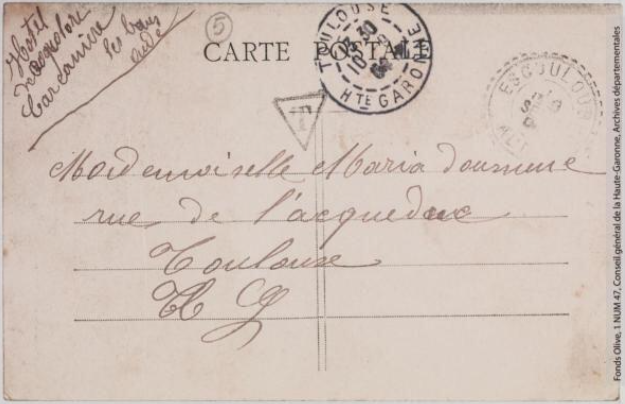 Hotel
Carcanière
les bains
Aude
5
CARTE POSTALE
TOULOUSE
HTE GARONNE
ESCOULOUBRE
T
Mademoiselle Maria
rue de l'acqueduc
Toulouse
H G
Fonds Olive, 1 NUM 47, Conseil général de la Haute-Garonne, Archives départementales